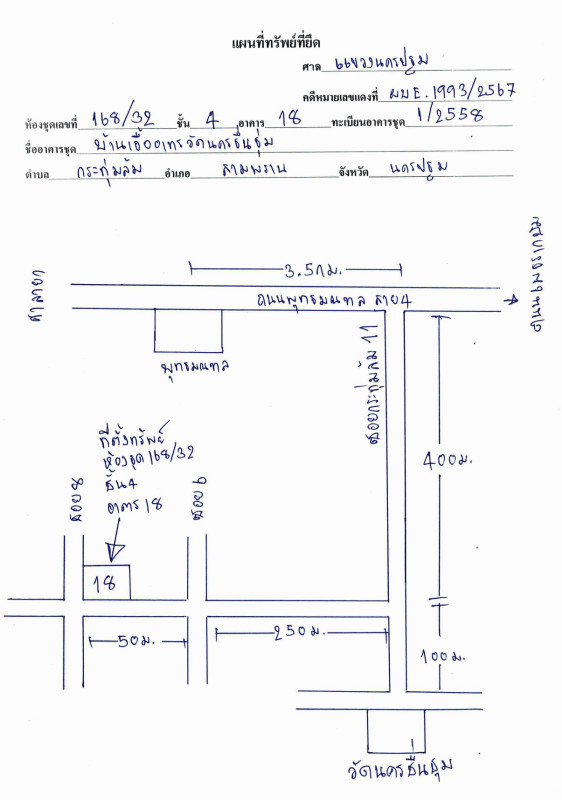 แผนที่ทรัพย์ที่ยึด
ศาล แขวงนครปฐม
คดีหมายเลขแดงที่ ผบE.1993/2567
ห้องชุดเลขที่ 168/32 ชั้น 4 อาคาร 18 ทะเบียนอาคารชุด 1/2558
ชื่ออาคารชุด บ้านเอื้ออาทรวัดนครชื่นชุ่ม
ตำบล กระทุ่มล้ม อำเภอ สามพราน จังหวัด นครปฐม
3.5กม.
ศาลายา
ถนนพุทธมณฑล สาย4
พุทธมณฑล
ซอยกระทุ่มล้ม 11
400ม.
ที่ตั้งทรัพย์
ห้องชุด 168/32
ชั้น4
อาคาร 18
ซอย 8
ซอย 6
18
50ม.
250ม.
100ม.
วัดนครชื่นชุ่ม